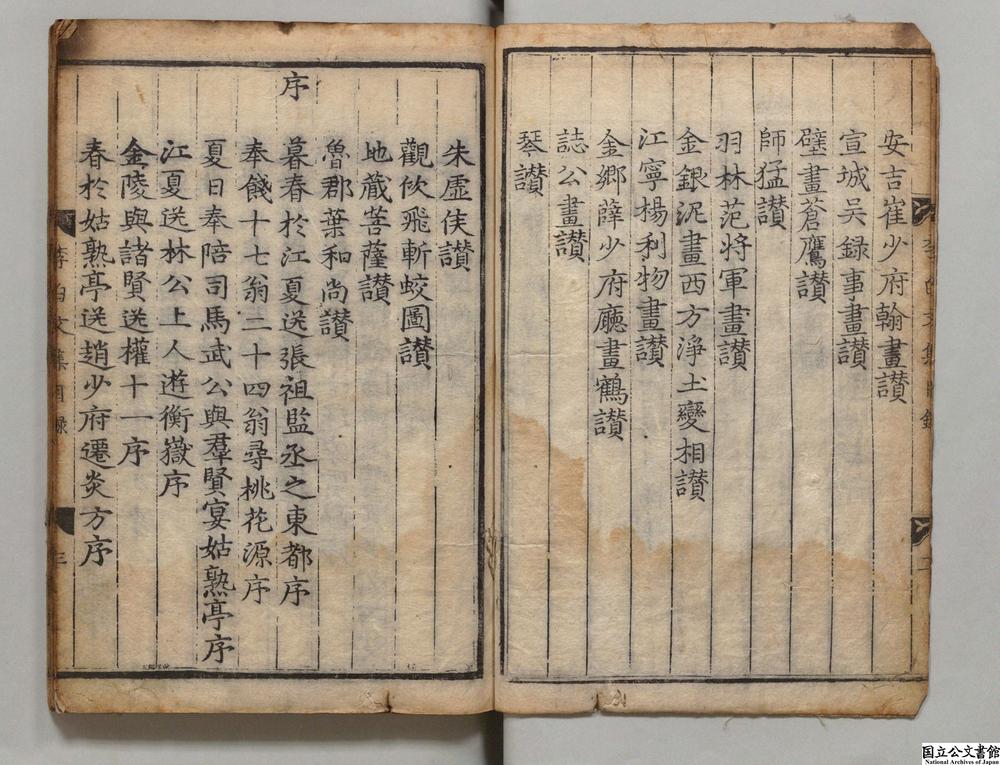 安吉崔少府翰畫讃
宣城吳録事畫讃
壁畫蒼鷹讃
師猛讃
羽林范將軍畫讃
金銀泥畫西方淨土變相讃
江寧楊利物畫讃
金鄉薛少府廳畫鶴讃
誌公畫讃
琴讃
朱虛侯讃
觀佽飛斬蛟圖讃
地蔵菩薩讃
魯郡葉和尚讃
序
暮春於江夏送張祖監丞之東都序
奉餞十七翁二十四翁尋桃花源序
夏日奉陪司馬武公與羣賢宴姑熟亭序
江夏送林公上人遊衡嶽序
金陵與諸賢送權十一序
春於姑熟亭送趙少府遷炎方序
李白文集目録
三
国立公文書館
National Archives of Japan